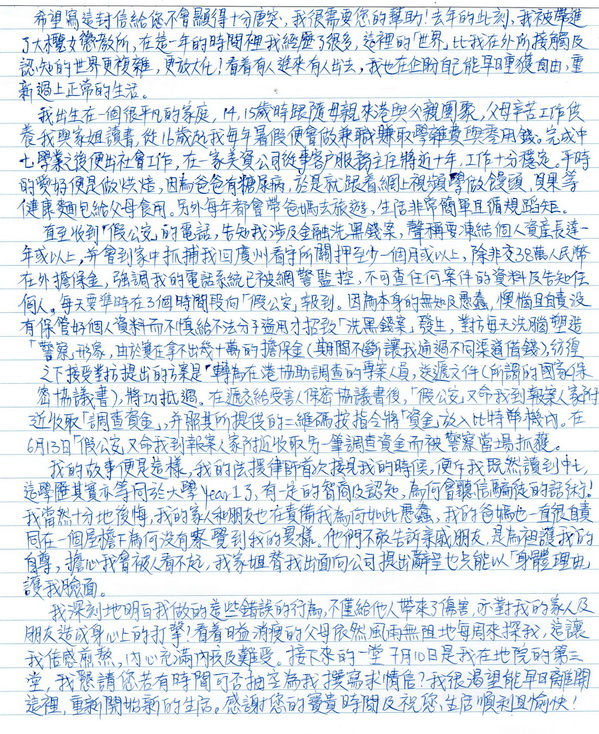 希望寫這封信給您不會顯得十分唐突，我很需要您的幫助！去年的此刻，我被帶進
了大欖女懲教所，在這一年的時間裡我經歷了很多，這裡的「世界」比我在外所接觸及
認知的世界更複雜，更放大化！看着有人進來有人出去，我也在企盼自己能早日重獲自由，重
新過上正常的生活。
我出生在一個很平凡的家庭，14,15歲時跟隨母親來港與父親團聚，父母辛苦工作供
養我與家姐讀書，從16歲起我每年暑假便會做兼職賺取學雜費與零用錢。完成中
七學業後便出社會工作，在一家美資公司從事客戶服務主任將近十年，工作十分穩定。平時
的愛好便是做烘焙，因為爸爸有糖尿病，於是就跟着網上視頻學做饅頭，貝果等
健康麵包給父母食用。另外每年都會帶爸媽去旅遊，生活非常簡單且循規蹈矩。
直至收到「假公安」的電話，告知我涉及金融洗黑錢案，聲稱要凍結個人資產長達一
年或以上，并會到家中抓捕我回廣州看守所關押至少一個月或以上，除非交38萬人民幣
在外擔保金，強調我的電話系統已被網警監控，不可查任何案件的資料及告知任
何人。每天要準時在3個時間段向「假公安」報到。因為本身的無知及愚蠢，懊惱且自責沒
有保管好個人資料而不慎給不法分子盜用才招致「洗黑錢案」發生，對方每天洗腦塑造
「警察」形象，由於實在拿不出幾十萬的擔保金（期間不斷讓我通過不同渠道借錢），彷徨
之下接受對方提出的方案是「轉為在港協助調查的專案人員，送遞文件（所謂的國家保
密協議書），將功抵過。在遞交給受害人保密協議書後，「假公安」又命我到報案人家附
近收取「調查資金」，并照其所提供的二維碼按指令將「資金」放入比特幣機內。在
6月13日「假公安」又命我到報案人家附近收取另一筆調查資金而被警察當場抓獲。
我的故事便是這樣，我的法援律師首次接見我的時候，便斥我既然讀到中七，
這學歷其實亦等同於大學Year 1了，有一定的智商及認知，為何會聽信騙徒的話術！
我當然十分地後悔，我的家人和朋友也在責備我為何如此愚蠢，我的爸媽也一直很自責
同在一個屋檐下為何沒有察覺到我的異樣。他們不敢告訴親戚朋友，是為袒護我的
自尊，擔心我會被人看不起，我家姐替我出面向公司提出辭呈也只能以「身體理由」
護我臉面。
我深刻地明白我做的這些錯誤的行為，不僅給他人帶來了傷害，亦對我的家人及
朋友造成身心上的打擊？看着日益消瘦的父母依然風雨無阻地每周來探我，這讓
我倍感煎熬，內心充滿內疚及難受。接下來的一堂7月10日是我在地院的第三
堂，我懇請您若有時間可否抽空為我撰寫求情信？我很渴望能早日離開
這裡，重新開始新的生活。感謝您的寶貴時間及祝您生活順利且愉快！